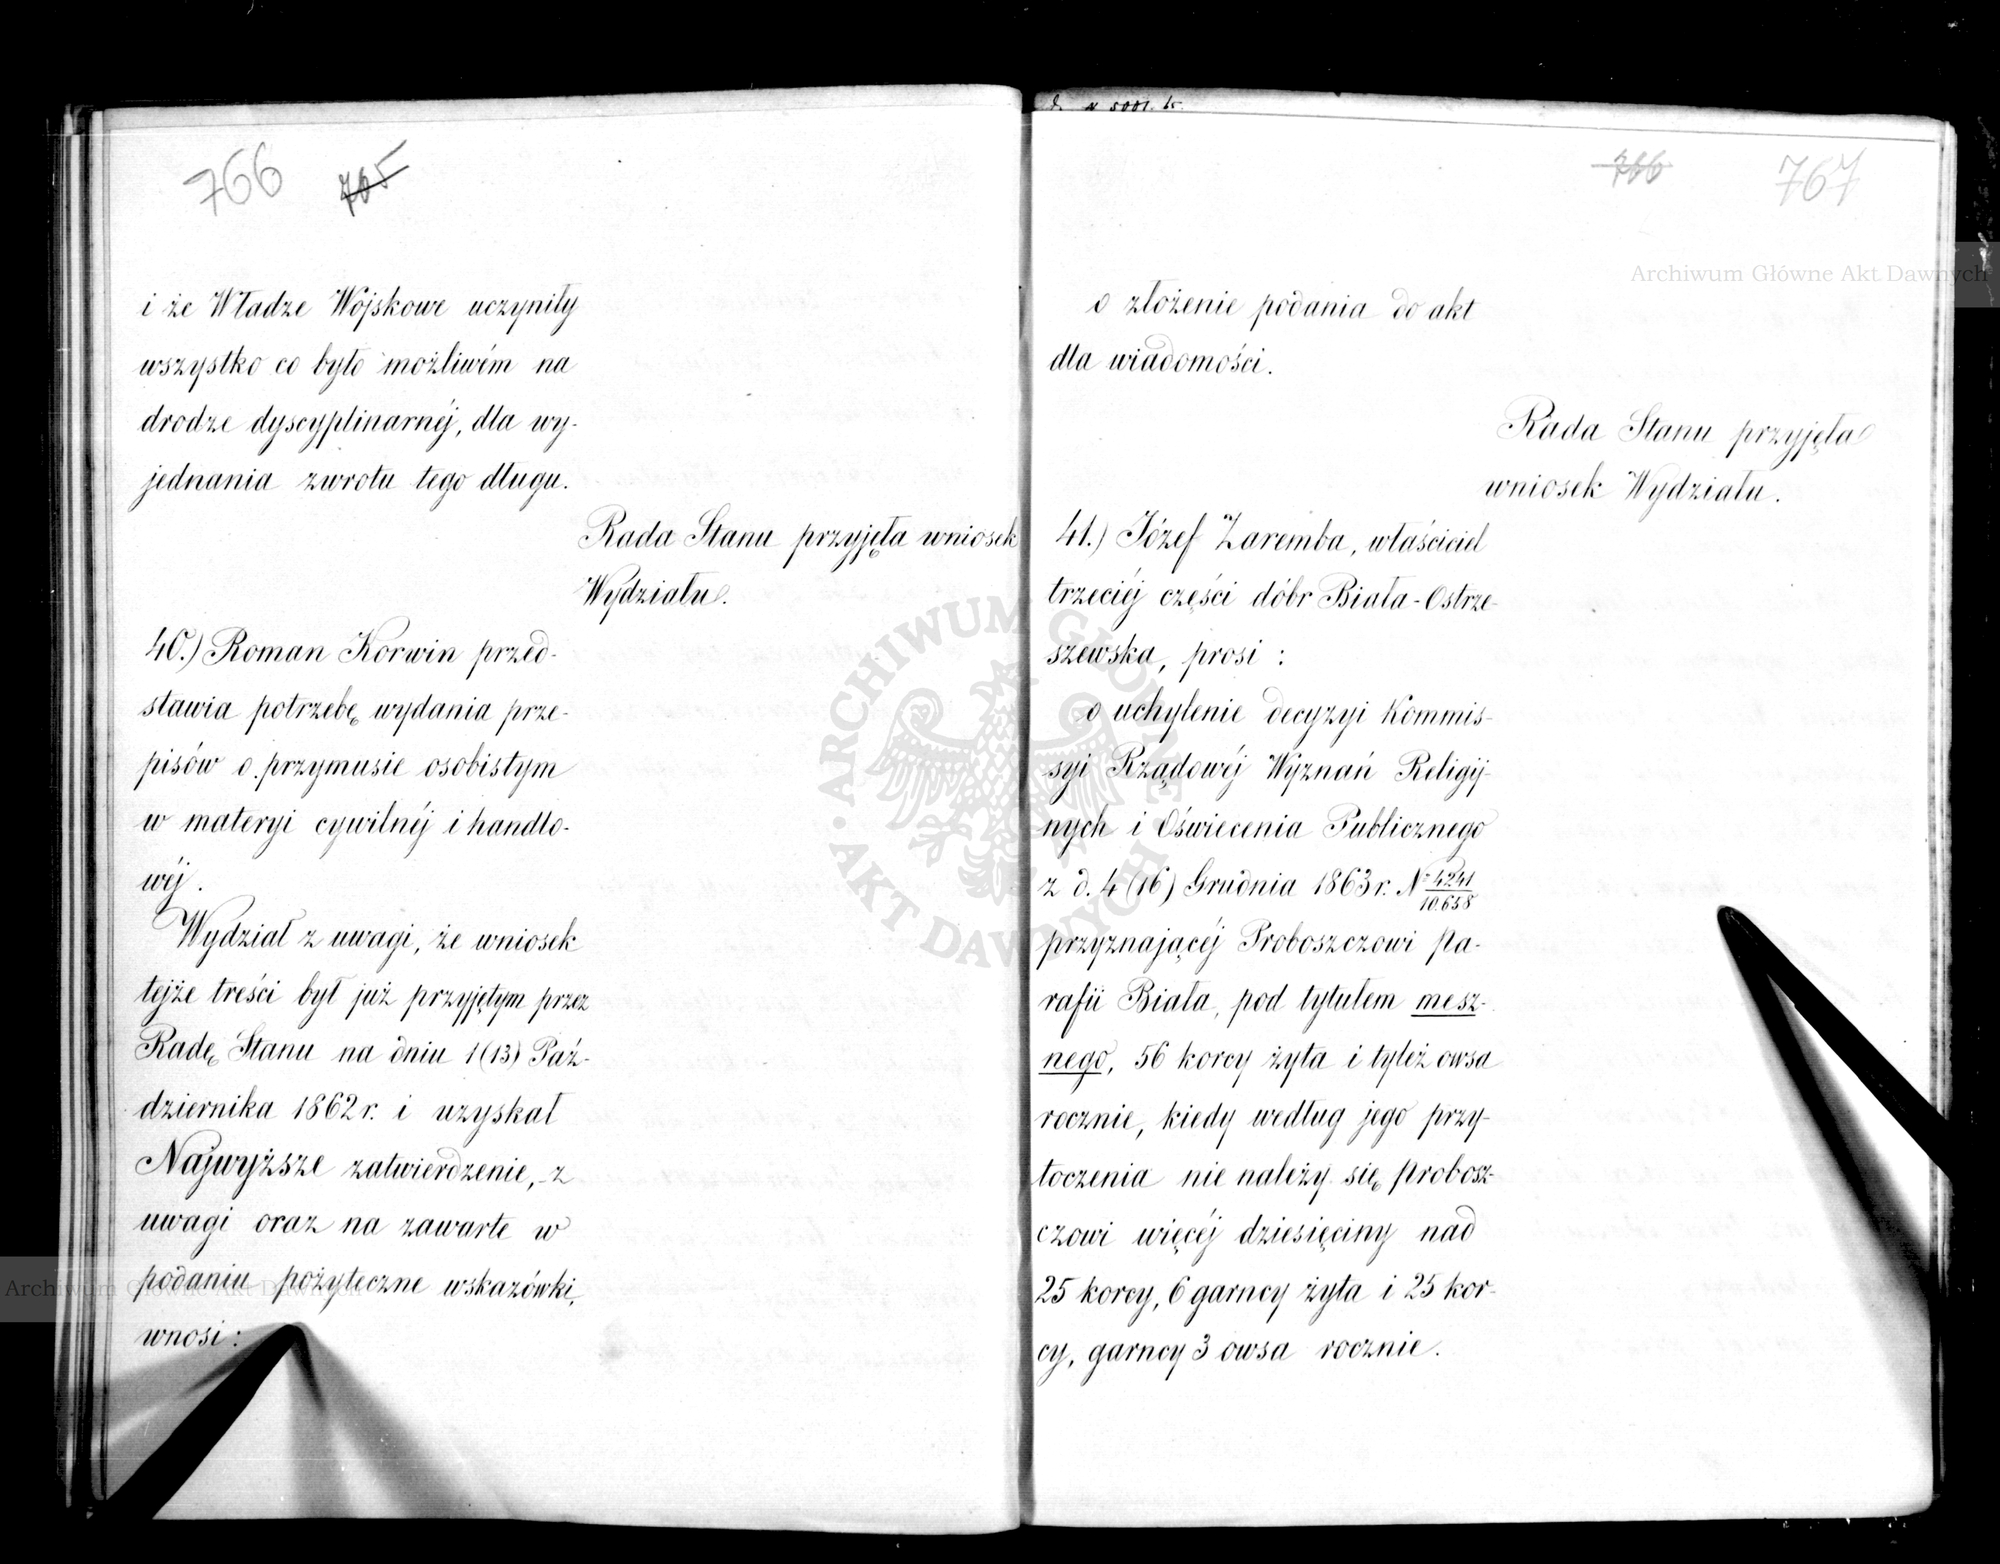 766 705
i że Władze Wojskowe uczyniły
wszystko co było możliwém na
drodze dyscyplinarnéj, dla wy-
jednania zwrotu tego długu.
Rada Stanu przyjęła wniosek
Wydziału.
40.) Roman Korwin przed-
stawia potrzebę wydania prze-
pisów o przymusie osobistym
w materyi cywilnéj i handlo-
wéj.
Wydział z uwagi, że wniosek
tejże treści był już przyjętym przez
Radę Stanu na dniu 1 (13) Paź-
dziernika 1862 r. i uzyskał
Najwyższe zatwierdzenie, z
uwagi oraz na zawarte w
podaniu pożyteczne wskazówki,
wnosi:
Archiwum Główne Akt Dawnych
ARCHIWUM GŁÓWNE AKT DAWNYCH
№ 5001.
766 767
Archiwum Główne Akt Dawnych
o złożenie podania do akt
dla wiadomości.
Rada Stanu przyjęła
wniosek Wydziału.
41.) Józef Zaremba, właściciel
trzeciéj części dóbr Biała-Ostrze-
szewska, prosi:
o uchylenie decyzyi Kommis-
syi Rządowéj Wyznań Religij-
nych i Oświecenia Publicznego
z d. 4 (16) Grudnia 1863 r. № 4241/10.658
przyznającéj Proboszczowi pa-
rafii Biała, pod tytułem mesz-
nego, 56 korcy żyta i tyleż owsa
rocznie, kiedy według jego przy-
toczenia nie należy się probosz-
czowi więcéj dziesięciny nad
25 korcy, 6 garncy żyta i 25 kor-
cy, garncy 3 owsa rocznie.